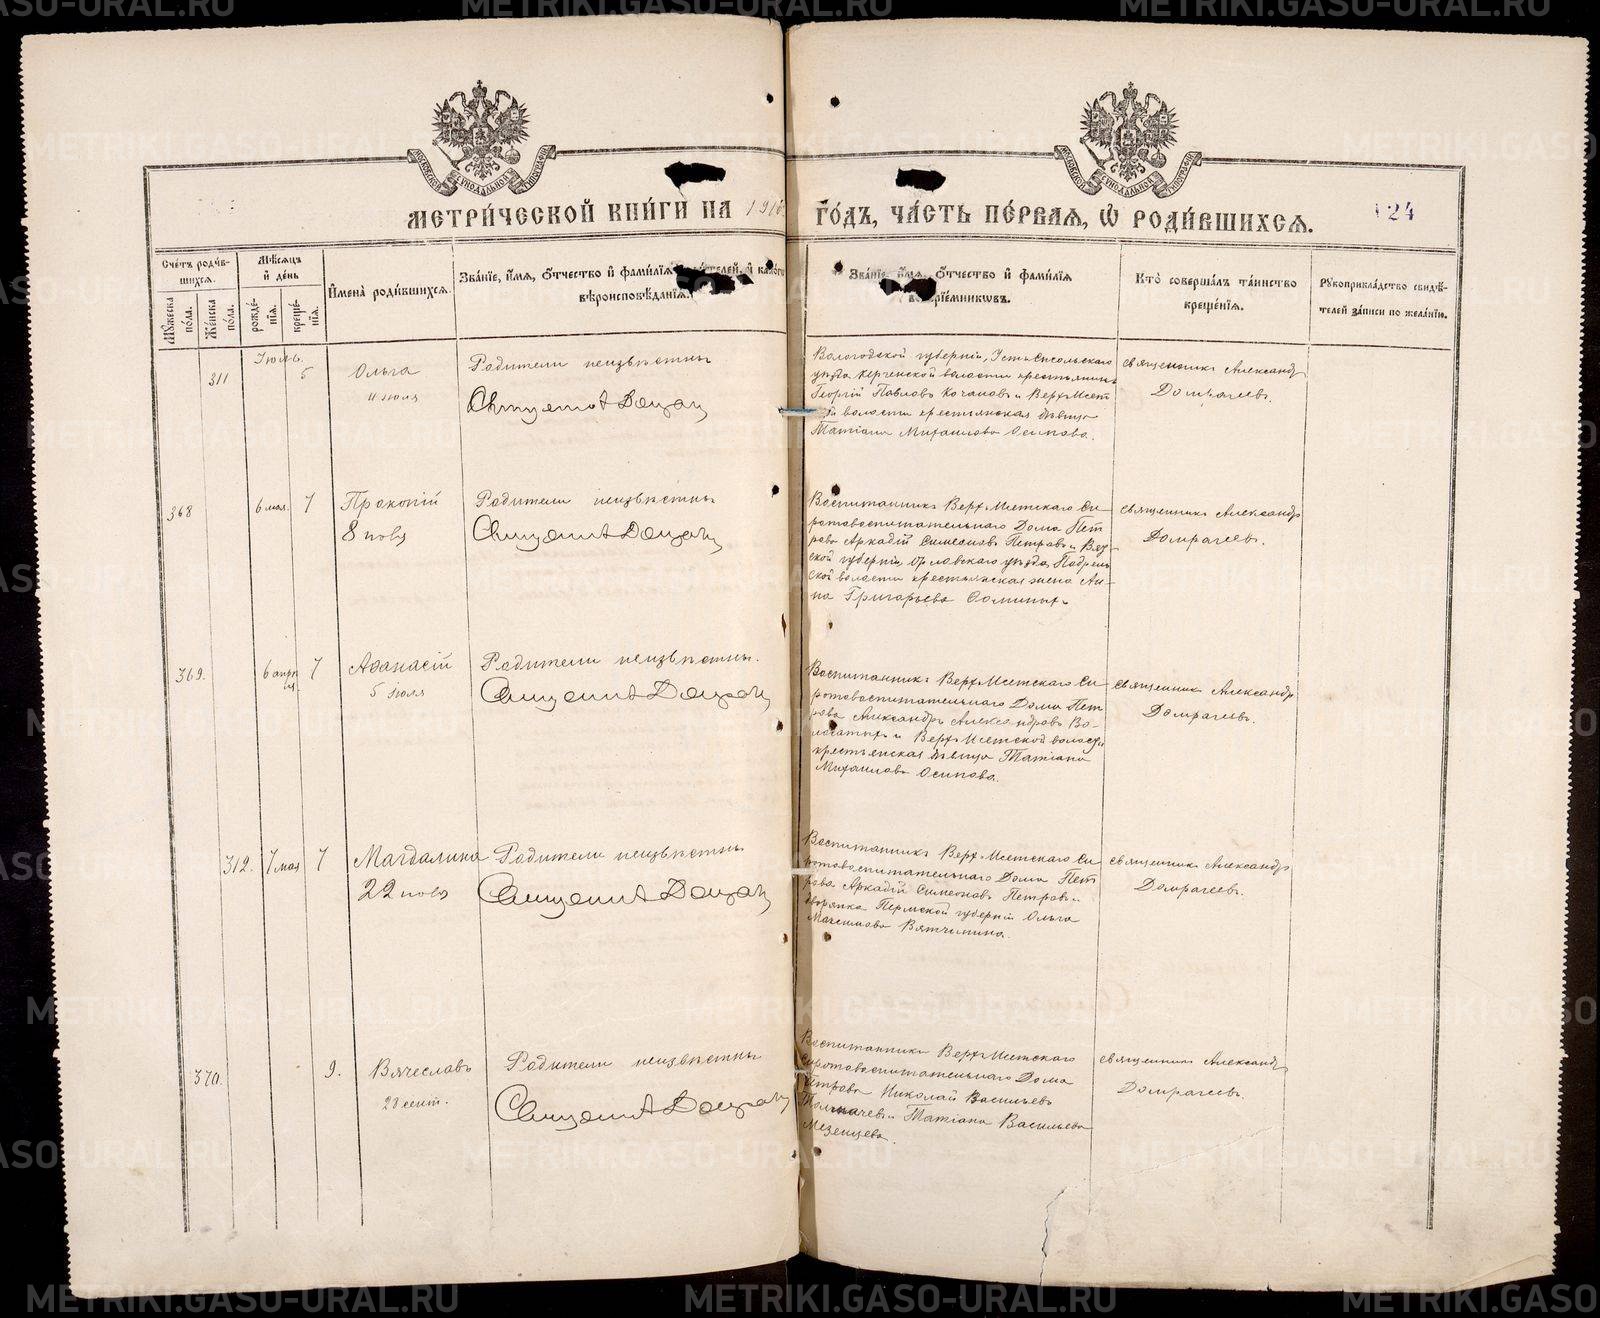 МЕТРИ́ЧЕСКОЙ КНИ́ГИ НА 1916
ГО́ДЪ, ЧА́СТЬ ПЕ́РВАѦ, Ѿ РОДИ́ВШИХСѦ.
124
Сче́тъ роди́в-
шихсѧ.
Мꙋ́жеска по́ла.
Же́нска по́ла.
Мѣ́сѧцъ и҆ де́нь
рожде́-
нїѧ.
креще́-
нїѧ.
И҆мена̀ роди́вшихсѧ.
Зва́нїе, и҆́мѧ, ѻ҆́тчество и҆ фами́лїѧ роди́телей, и҆ како́гѡ
вѣроисповѣ́данїѧ.
Зва́нїе, и҆́мѧ, ѻ҆́тчество и҆ фами́лїѧ
воспрїе́мникѡвъ.
Кто̀ соверша́лъ та́инство
креще́нїѧ.
Рꙋкоприкла́дство свидѣ́-
телей за́писи по жела́нїю.
311
Іюль.
5
Ольга
11 іюля
Родители неизвѣстны
Вологодской губерніи, Усть-Сысольскаго
уѣзда Керченской волости крестьянинъ
Георгій Павловъ Кочановъ и Верх-Исет
й волости крестьянская дѣвица
Татіана Михаилова Осипова.
священникъ Александръ
Домрачевъ.
368
6 мая.
7
Прокопій
8 ноября
Родители неизвѣстны
Воспитанникъ Верх-Исетскаго Си-
ротовоспитательнаго Дома Пет
рова Аркадій Симеоновъ Петровъ и Вят-
ской губерніи, Орловскаго уѣзда, Подрель
ской волости крестьянская жена Ан-
на Григорьева Соминыхъ
священникъ Александръ
Домрачевъ.
369.
6 апрѣ
ля
7
Аѳанасій
5 іюля
Родители неизвѣстны.
Воспитанникъ Верх-Исетскаго Си-
ротовоспитательнаго Дома Пет
рова Александръ Александровъ Во-
лосатыхъ и Верх-Исетской волости
крестьянская дѣвица Татіана
Михаилова Осипова.
священникъ Александръ
Домрачевъ.
312.
7 мая
7
Магдалина
22 ноября
Родители неизвѣстны
Воспитанникъ Верх-Исетскаго Си-
ротовоспитательнаго Дома Пет
рова Аркадій Симеоновъ Петровъ и
дворянка Пермской губерніи Ольга
Максимова Вятчинина.
священникъ Александръ
Домрачевъ.
370.
9.
Вячеславъ
28 сент.
Родители неизвѣстны
Воспитанники Верх-Исетскаго
Сиротовоспитательнаго Дома
Петрова Николай Васильевъ
Толмачевъ и Татіана Васильева
Мезенцева.
священникъ Александръ
Домрачевъ.
METRIKI.GASO-URAL.RU